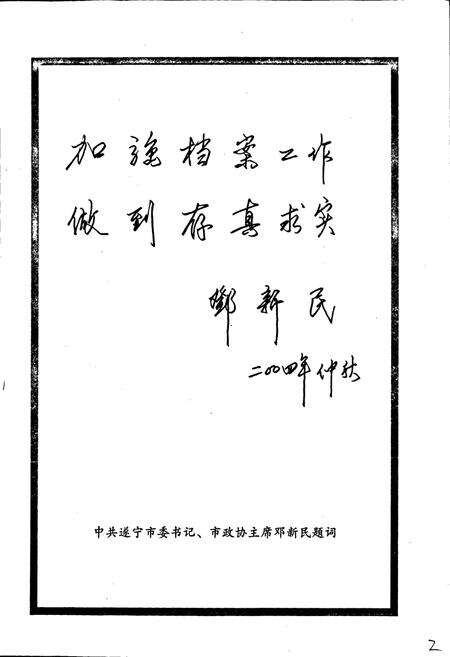 加强档案工作
做到存真求实
鄧新民
二〇〇四年仲秋
中共遂宁市委书记、市政协主席邓新民题词
2